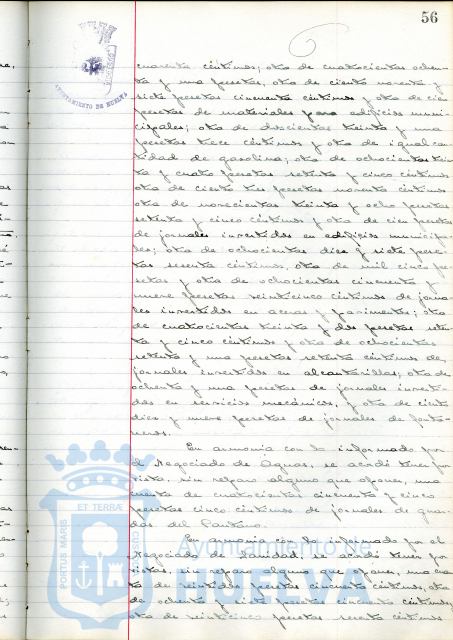 56
AYUNTAMIENTO DE HUELVA
cuarenta céntimos; otra de cuatrocientas ochen-
ta y una pesetas, otra de ciento noventa y
siete pesetas cincuenta céntimos y otra de cien
pesetas de materiales para edificios muni-
cipales; otra de doscientas treinta y una
pesetas trece céntimos y otra de igual can-
tidad de gasolina; otra de ochocientas trein-
ta y cuatro pesetas setenta y cinco céntimos
otra de ciento tres pesetas noventa céntimos
otra de novecientas treinta y ocho pesetas
setenta y cinco céntimos y otra de cien pesetas
de jornales invertidos en edificios municipa-
les; otra de ochocientas diez y siete pese-
tas sesenta céntimos, otra de mil cinco pe-
setas y otra de ochocientas cincuenta y
nueve pesetas veinticinco céntimos de jorna-
les invertidos en aceras y pavimentos; otra
de cuatrocientas treinta y dos pesetas seten-
ta y cinco céntimos y otra de ochocientas
setenta y una pesetas setenta céntimos de
jornales invertidos en alcantarillas; otra de
ochenta y una pesetas de jornales inverti-
dos en servicios mecánicos, y otra de ciento
diez y nueve pesetas de jornales de fonta-
neros.
En armonía con lo informado por
el Negociado de Aguas, se acordó tener por
vista, sin reparo alguno que oponer, una
cuenta de cuatrocientas cincuenta y cinco
pesetas cinco céntimos de jornales de guar-
das del Pantano.
En armonía con lo informado por el
Negociado de Sanidad, se acordó tener por
vistas, sin reparo alguno que oponer, una cuen-
ta de veintidos pesetas cincuenta céntimos, otra
de ochenta y siete pesetas cincuenta céntimos,
otra de veinticinco pesetas sesenta céntimos
PORTUS MARIS
ET TERRÆ
Ayuntamiento de
HUELVA